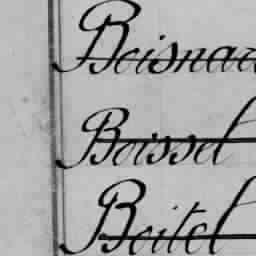 Boisnar
Boissel
Boitel